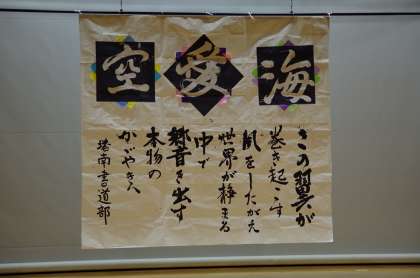 海
愛
空
この翼が
巻き起こす
風をしたがえ
世界が静まる
中で
響き出す
本物の
かがやきへ
塔南書道部